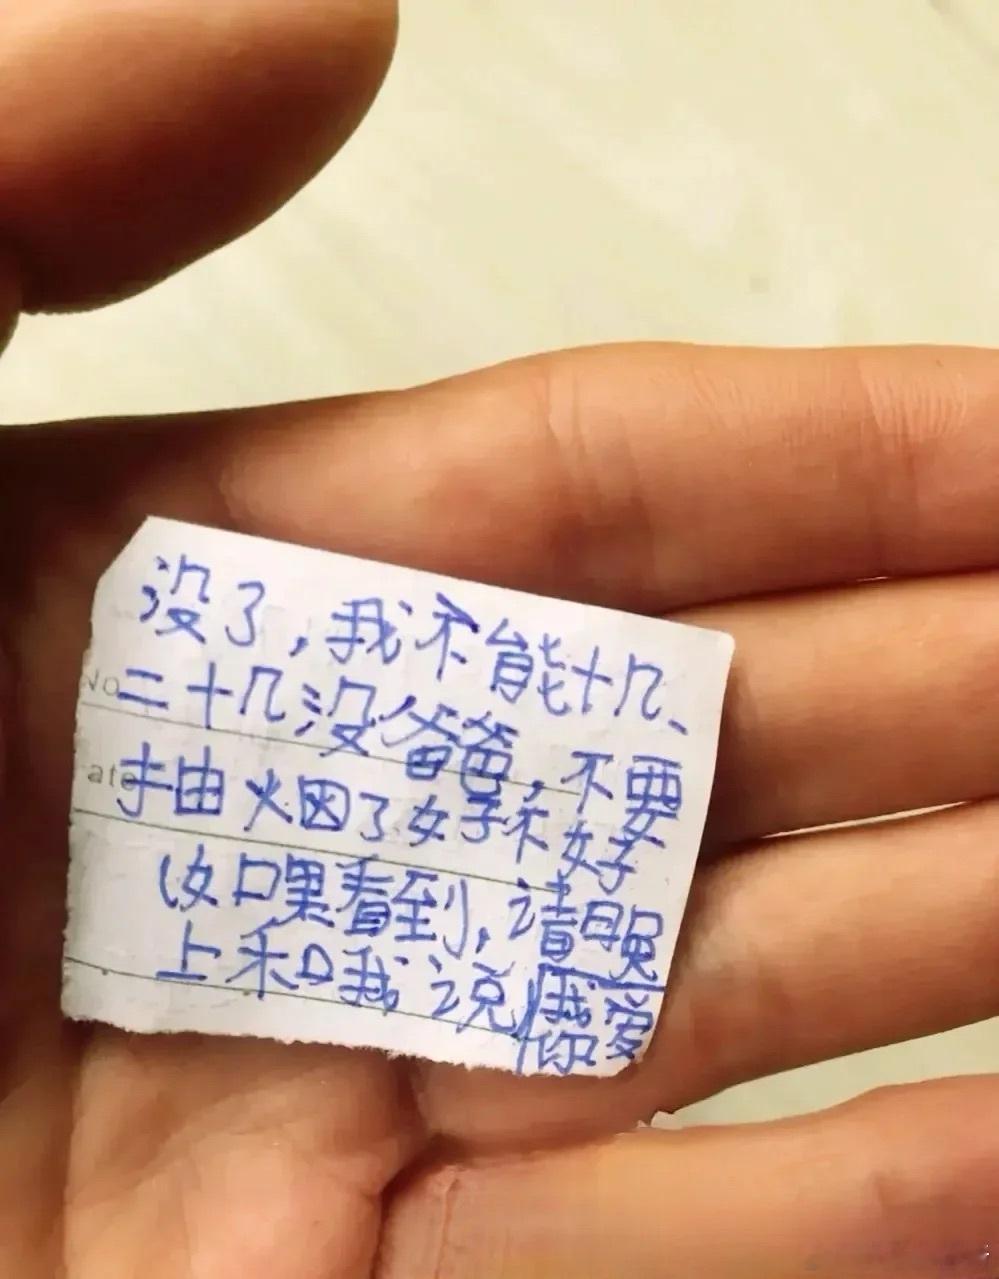 没了，我不能十几、
二十几没爸爸，不要
抽烟了好不好
如果看到，请晚
上和我说我爱
你
No
ate